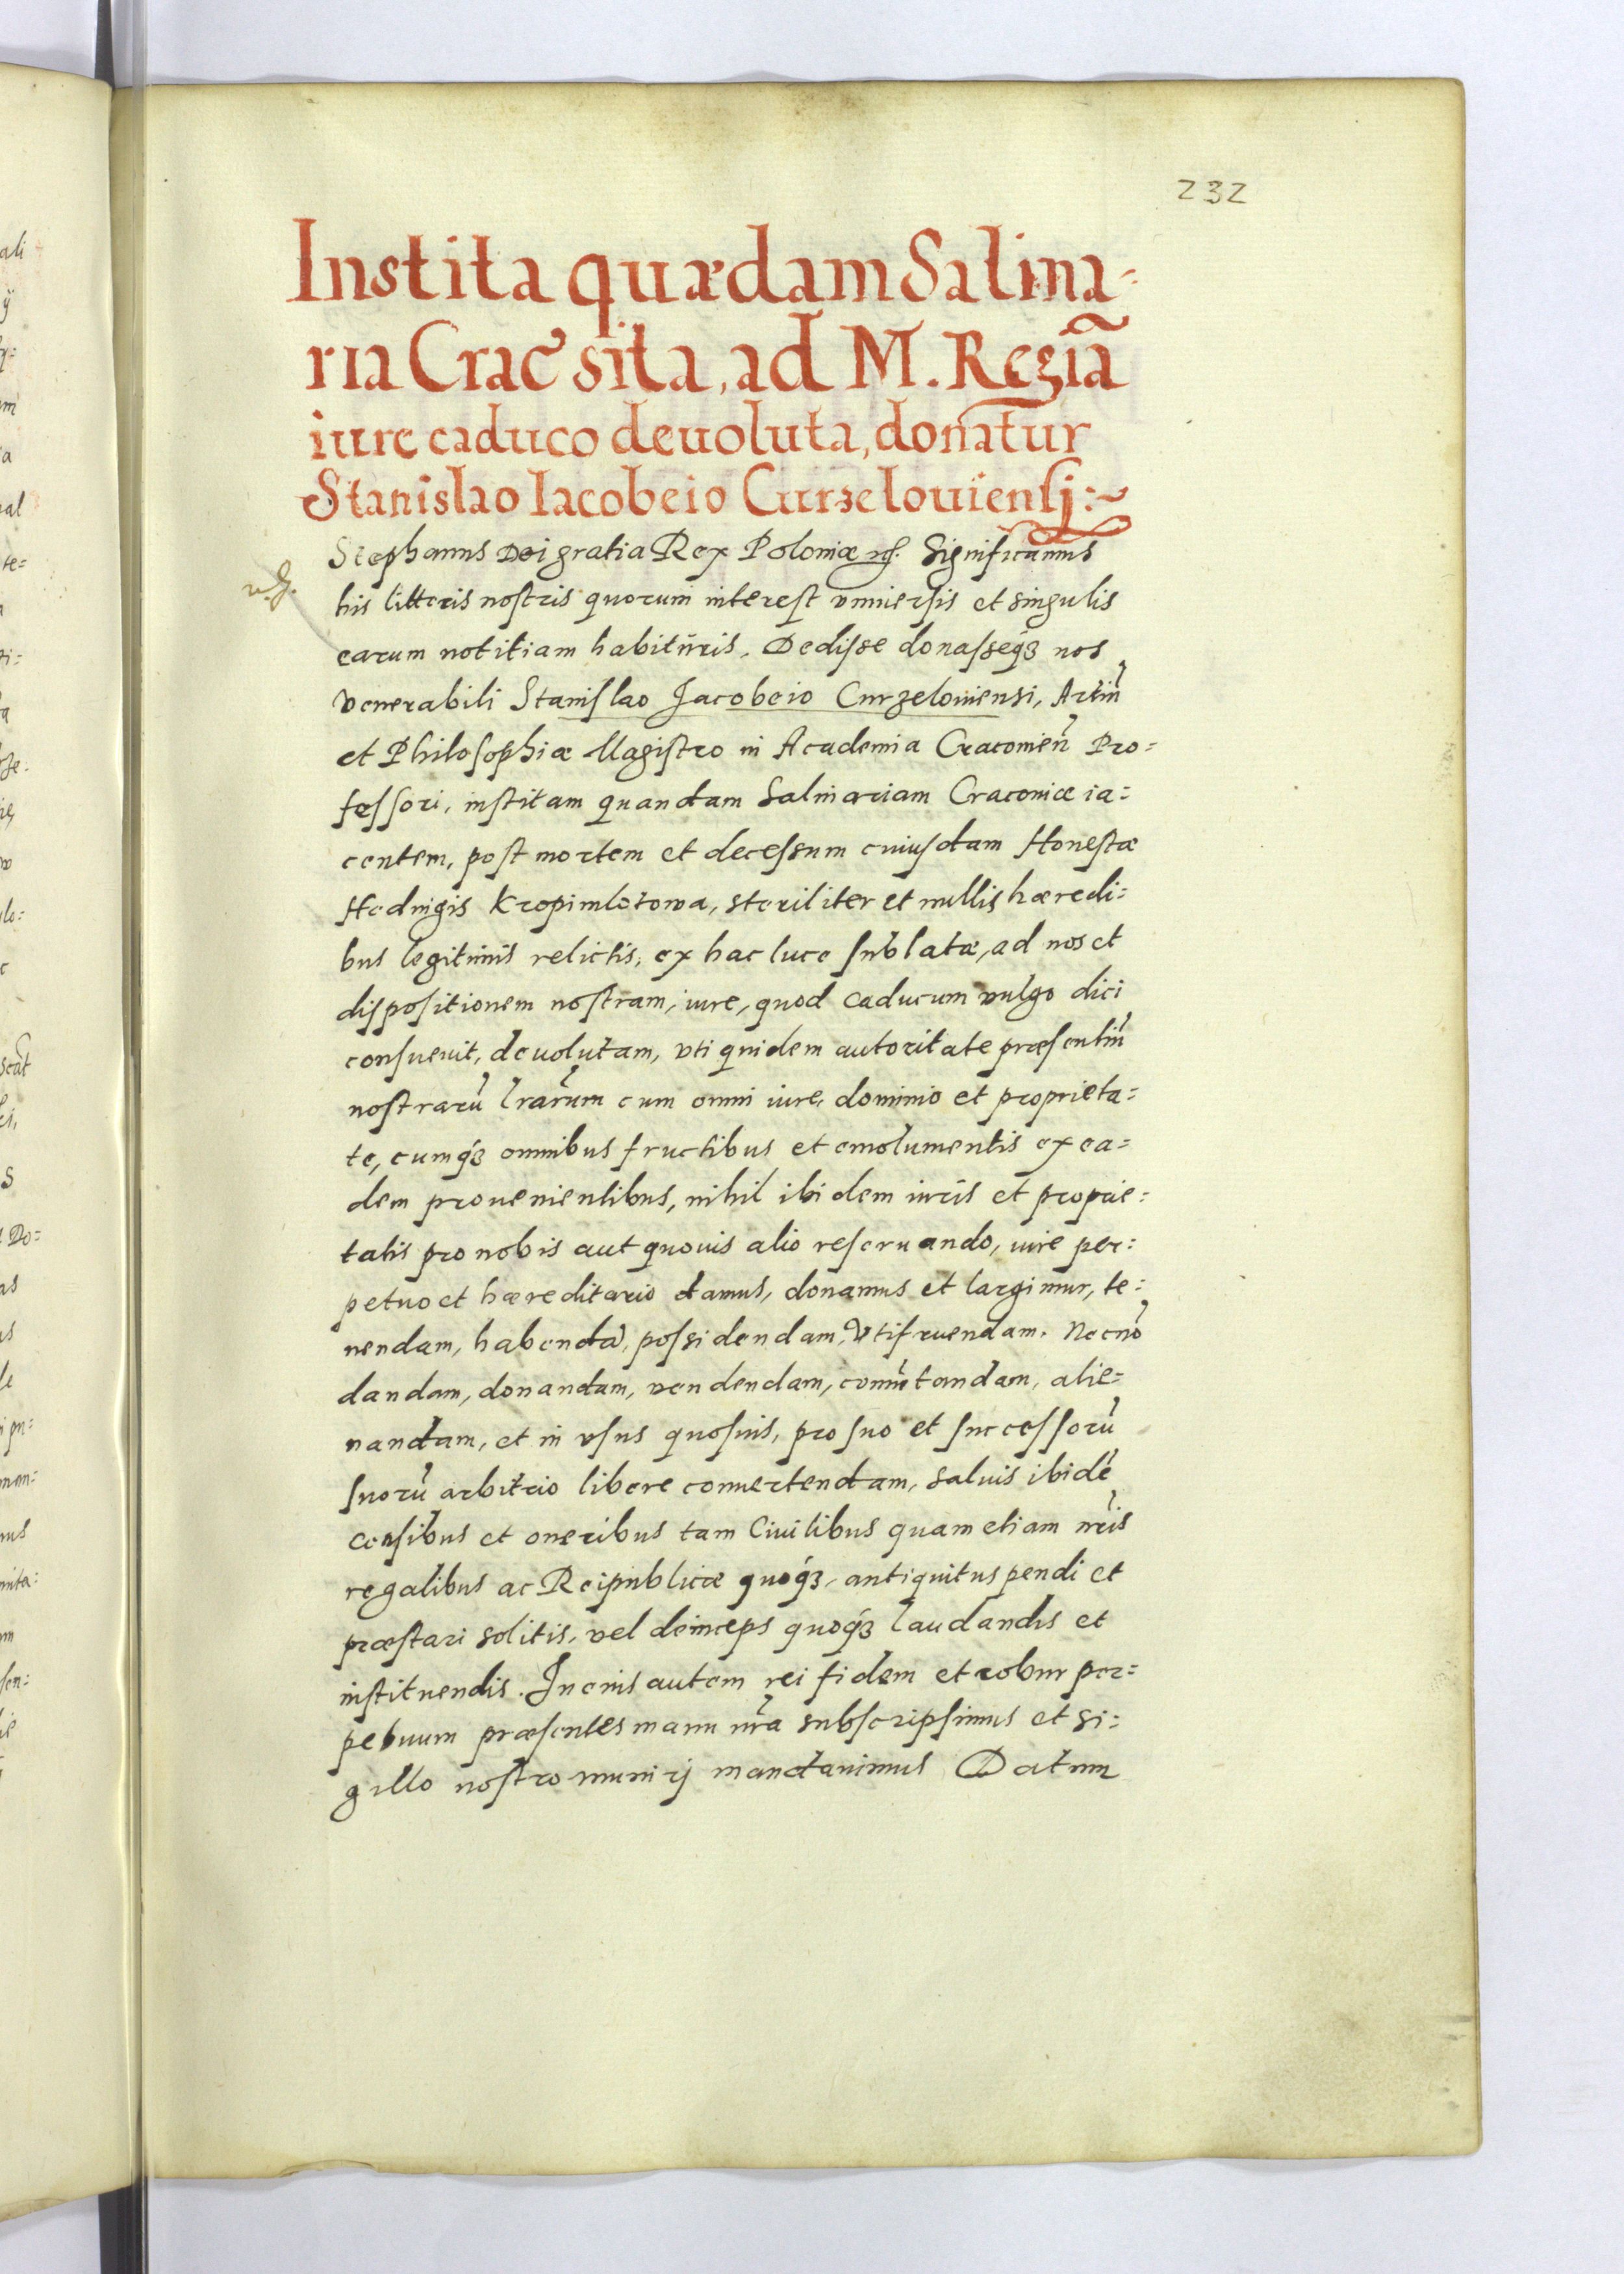 232
Instita quædam Salina-
ria Crac̃ sita, ad M. Regiã
iure caduco deuoluta, donatur
Stanislao Iacobeio Curzelouiensij:~
Stephanus Dei gratia Rex Poloniæ Significamus
his litteris nostris quorum interest vniuersis et singulis
earum notitiam habituris. Dedisse donasseq́ꝫ nos
venerabili Stanislao Jacobeio Curzelouiensi, Artiũ
et Philosophiæ Magistro in Academia Cracouieñ Pro=
fessori, institam quandam Salinariam Cracouiæ ia=
centem, post mortem et decessum cuiusdam Honestæ
Heduigis Kropiwlotowa, steriliter et nullis hæredi=
bus legitimis relictis, ex hac luce sublatæ, ad nos et
dispositionem nostram, iure, quod caducum vulgo dici
consueuit, deuolutam, vti quidem autoritate præsentiũ
nostrarũ lr̃arum cum omni iure, dominio et proprieta=
te, cumq́ꝫ omnibus fructibus et emolumentis ex ea=
dem prouenientibus, nihil ibidem iuris et proprie=
tatis pro nobis aut quouis alio reseruando, iure per=
petuo et hæreditario damus, donamus et largimur, te=
nendam, habendã, possidendam, vtifruendam. Necnõ
dandam, donandam, vendendam, comũtandam, alie=
nandam, et in vsus quosuis, pro suo et successorũ
suorũ arbitrio libere conuertendam, saluis ibidẽ
censibus et oneribus tam Ciuilibus quam etiam nr̃is
regalibus ac Reipublicæ quoq́ꝫ, antiquitus pendi et
præstari solitis, vel deinceps quoq́ꝫ laudandis et
instituendis. In cuius autem rei fidem et robur per=
petuum præsentes manu nr̃a subscripsimus et si=
gillo nostro munirj mandauimus Datum